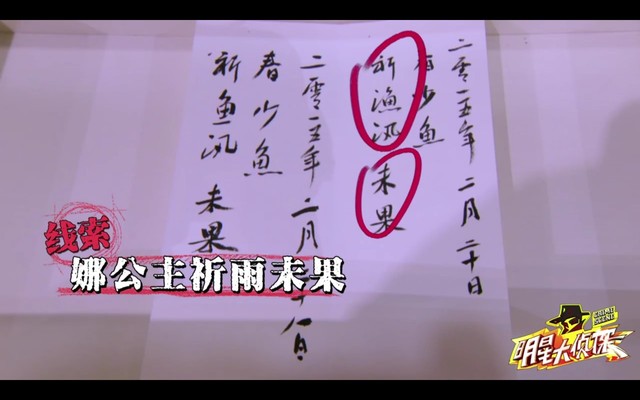 二零一五年 二月 二十日
春少鱼
祈渔汛 未果
二零一五年 二月 十八日
春少鱼
祈鱼汛 未果
线索
娜公主祈雨未果
CRIME SCENE
明星大侦探